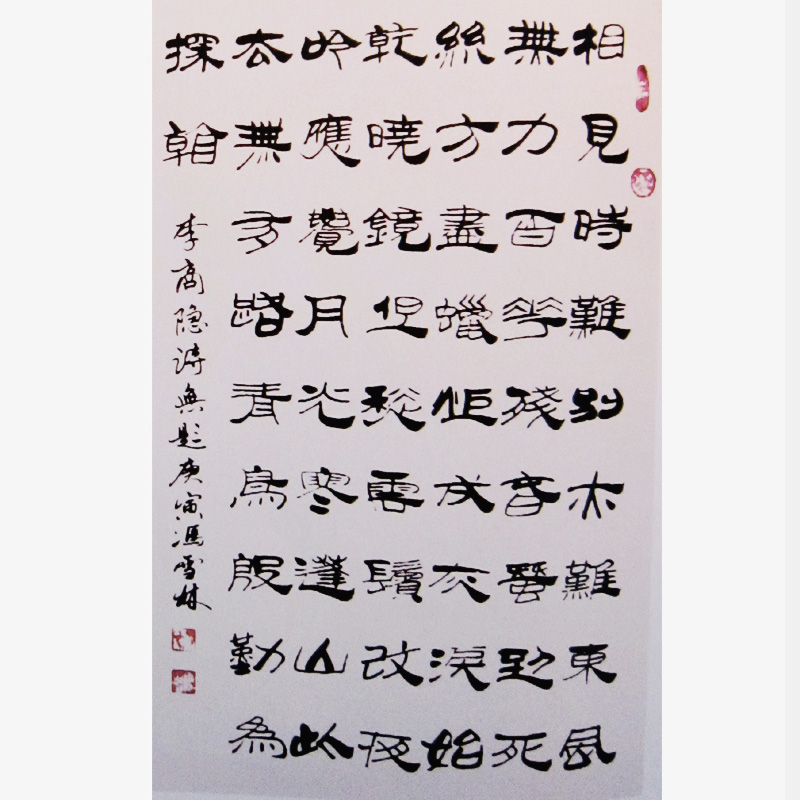 相見時難別亦難東風
無力百花殘春蠶到死
絲方盡蠟炬成灰淚始
乾曉鏡但愁雲鬢改夜
吟應覺月光寒蓬山此
去無多路青鳥殷勤為
探看
李商隐詩無题庚寅馮雪林